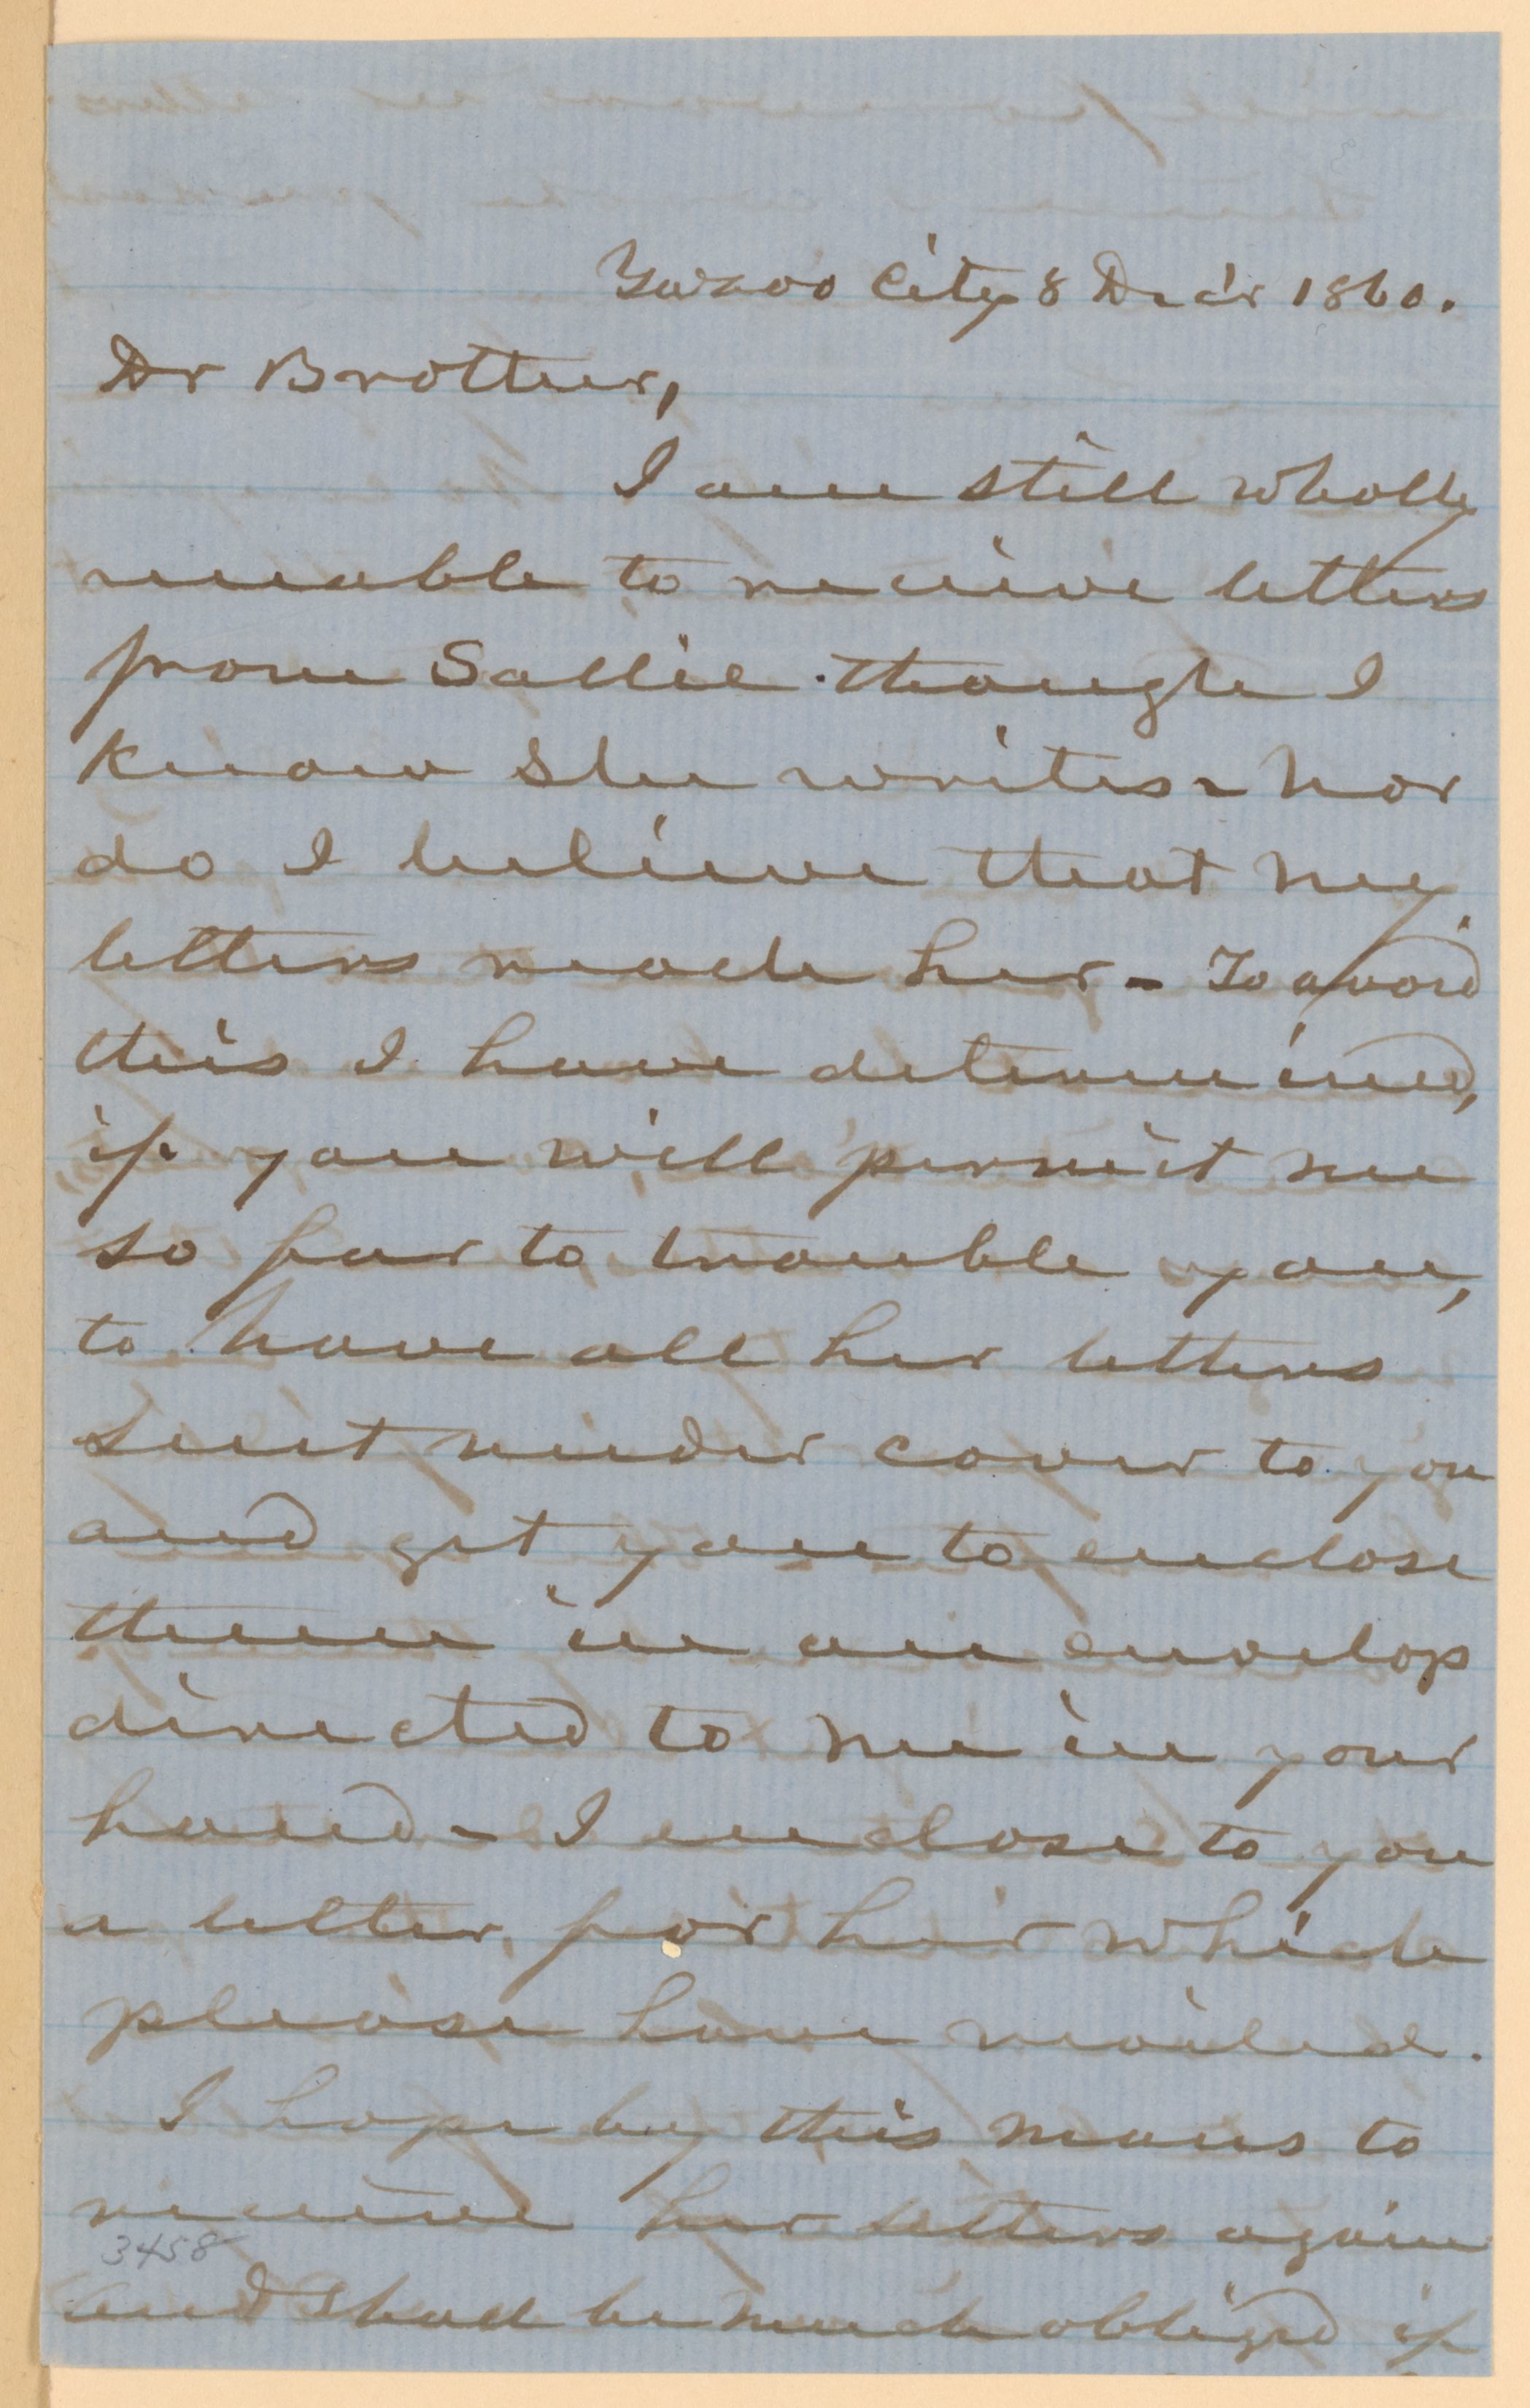 Yazoo City 8 Dec'r 1860.
Dr Brother,
I am still wholly
unable to receive letters
from Sallie though I
know she writes - Nor
do I believe that my
letters reach her - To avoid
this I have determined,
if you will permit me
so far to trouble you,
to have all her letters
sent under cover to you
and get you to enclose
them in an envelop
directed to me in your
hand - I enclose to you
a letter for her which
please have mailed.
I hope by this means to
receive her letters again
3458
and shall be much obliged if